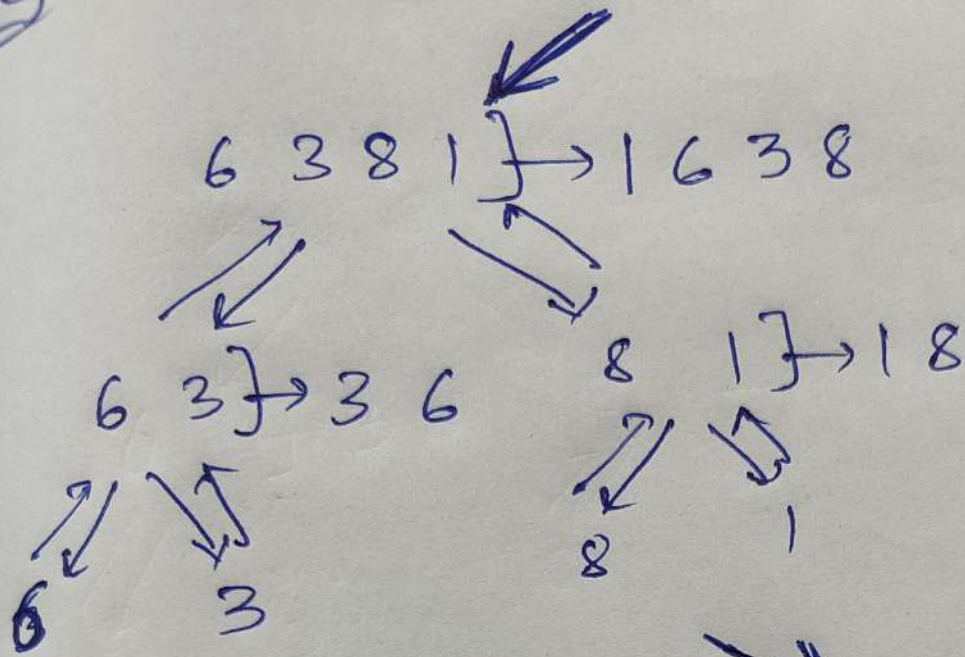 6 3 8 1 ] → 1 6 3 8
6 3 ] → 3 6
8 1 ] → 1 8
6
3
8
1